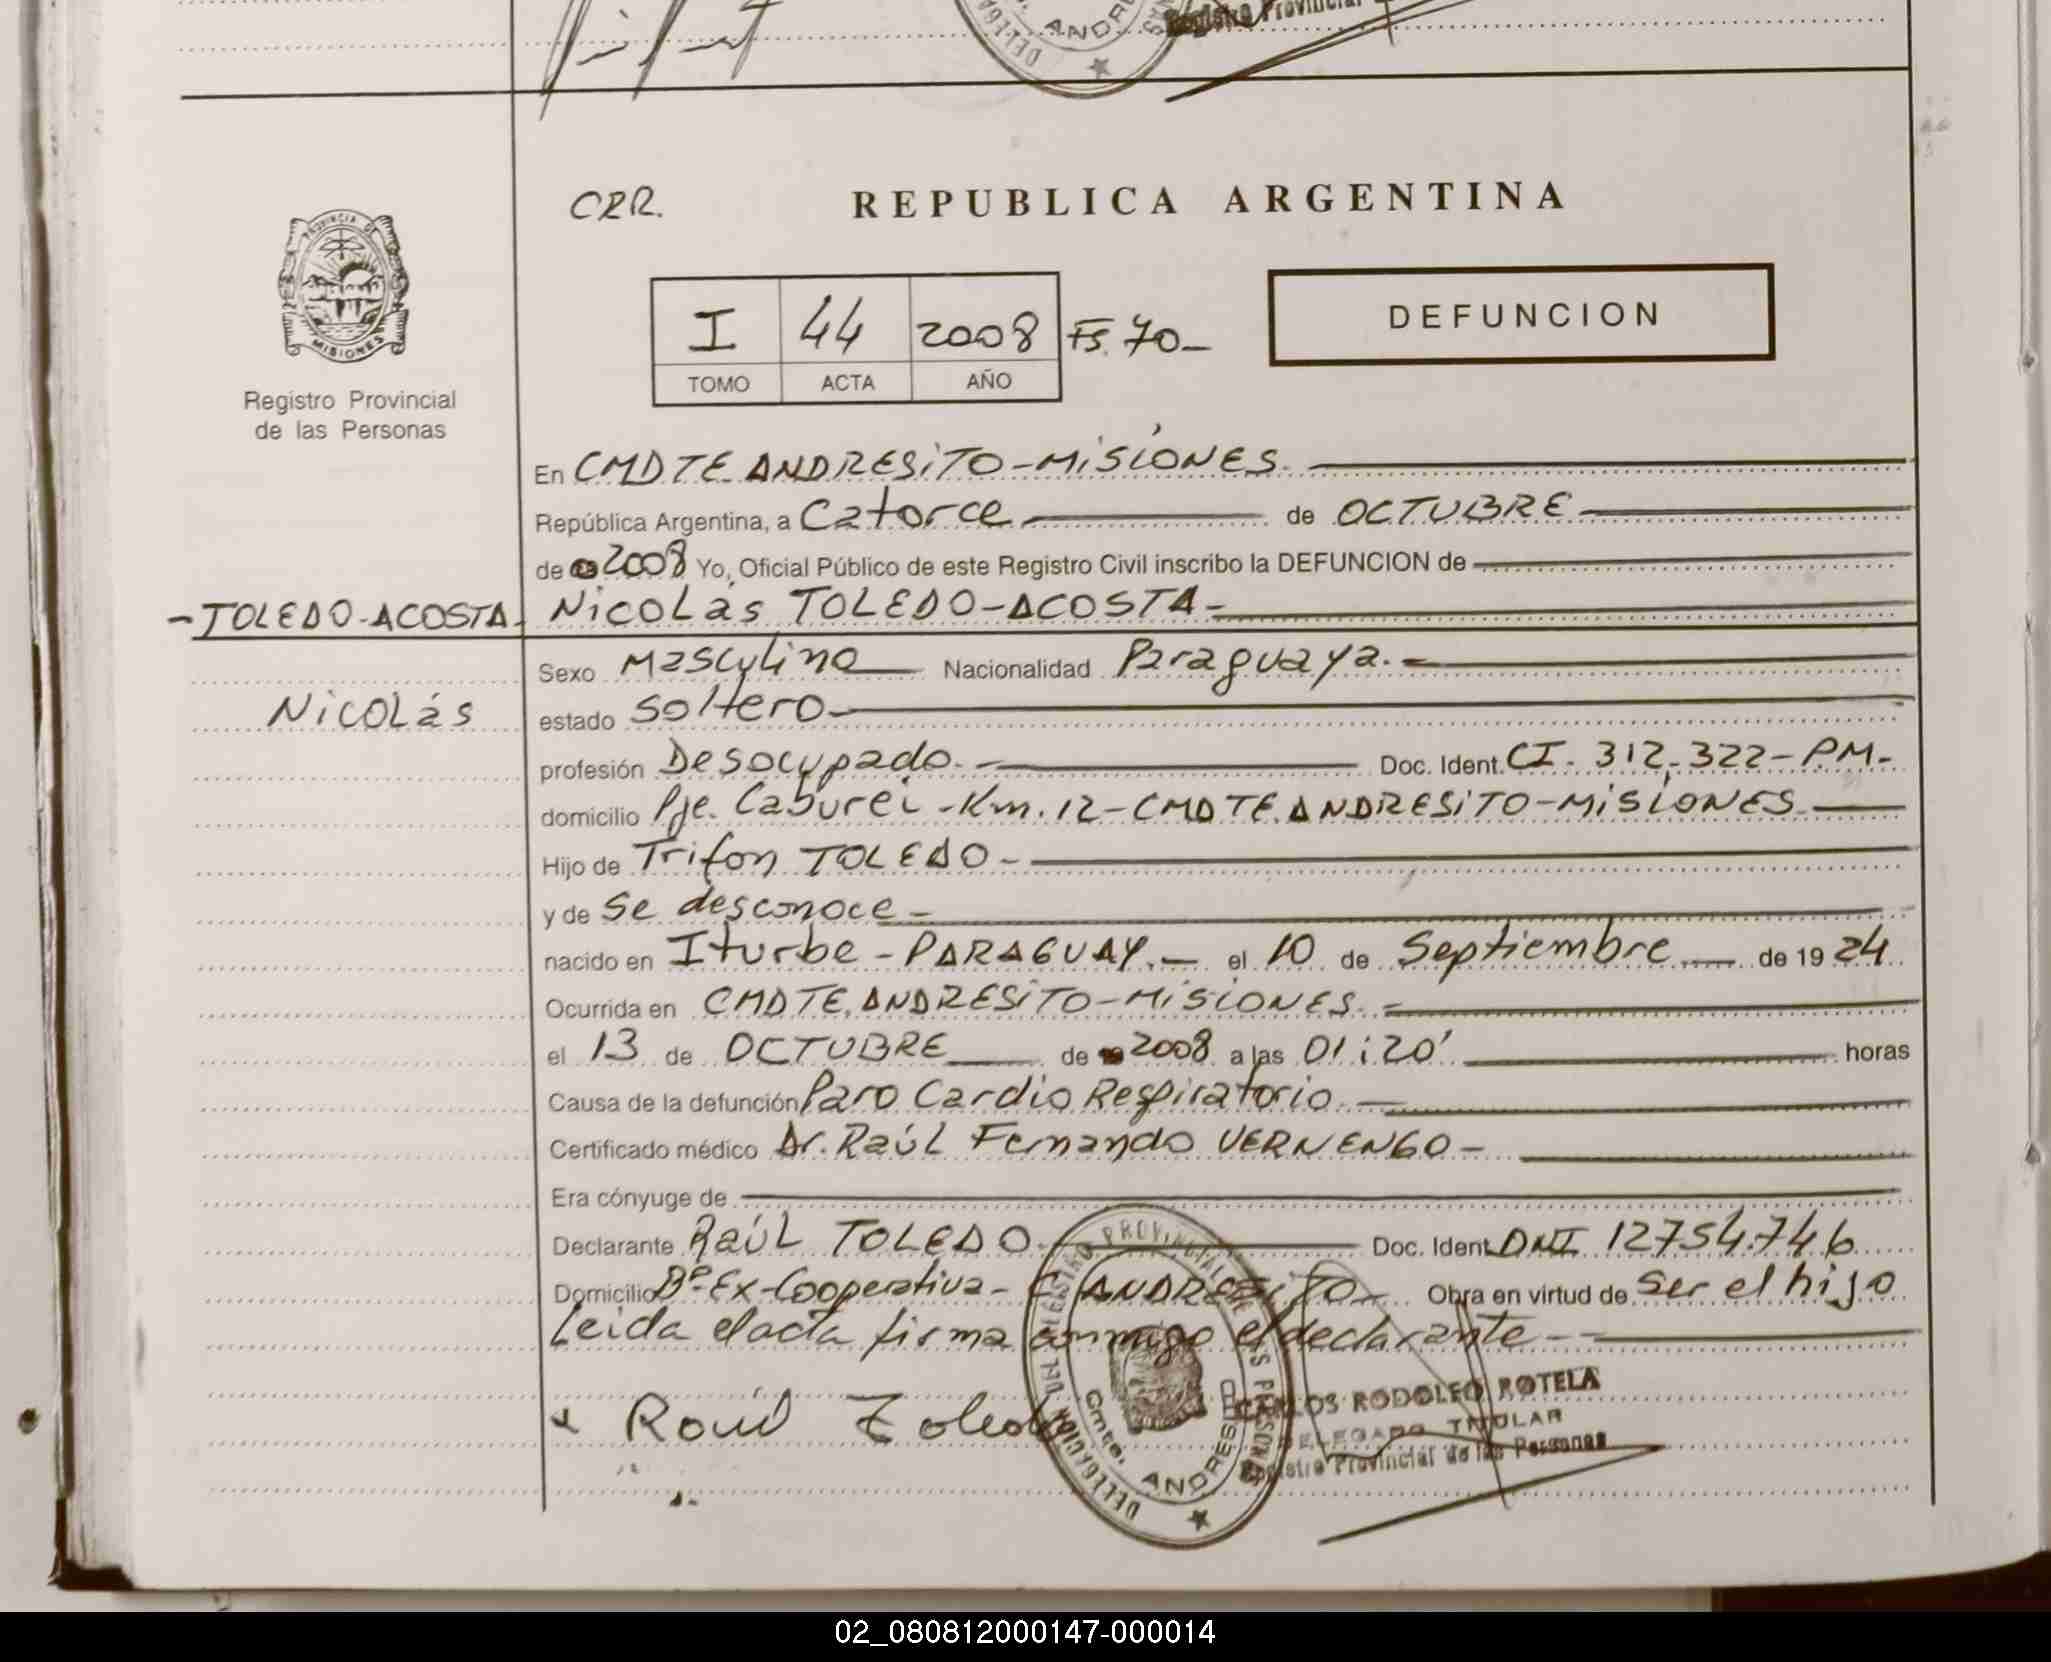 DELEGA
ANDRE
Registro Provincial
PROVINCIA DE
MISIONES
Registro Provincial
de las Personas
CRR.
REPUBLICA ARGENTINA
I 44 2008 Fs. 70-
TOMO ACTA AÑO
DEFUNCION
En CMDTE ANDRESITO-MISIONES.
República Argentina, a Catorce de OCTUBRE
de 2008 Yo, Oficial Público de este Registro Civil inscribo la DEFUNCION de
-TOLEDO-ACOSTA- Nicolás TOLEDO-ACOSTA-
Sexo Masculino Nacionalidad Paraguaya.-
Nicolás estado soltero
profesión Desocupado.- Doc. Ident. CI. 312.322-PM-
domicilio Pje. Caburei -Km. 12-CMDTE.ANDRESITO-MISIONES
Hijo de Trifon TOLEDO-
y de se desconoce-
nacido en Iturbe - PARAGUAY.- el 10 de Septiembre de 19 24
Ocurrida en CMDTE.ANDRESITO-MISIONES.-
el 13 de OCTUBRE de 2008 a las 01:20' horas
Causa de la defunción Paro Cardio Respiratorio.-
Certificado médico Dr. Raúl Fernando VERNENGO-
Era cónyuge de
Declarante Raúl TOLEDO- Doc. Ident. DNI 12754.746
Domicilio Bº-Ex-Cooperativa- C ANDRESITO- Obra en virtud de ser el hijo
Leida el acta firma conmigo el declarante--
x Raul Toledo
DELEGACION DEL REGISTRO PROVINCIAL DE LAS PERSONAS
Cmte. ANDRESITO
CARLOS RODOLFO ROTELA
DELEGADO TITULAR
Registro Provincial de las Personas
02_080812000147-000014